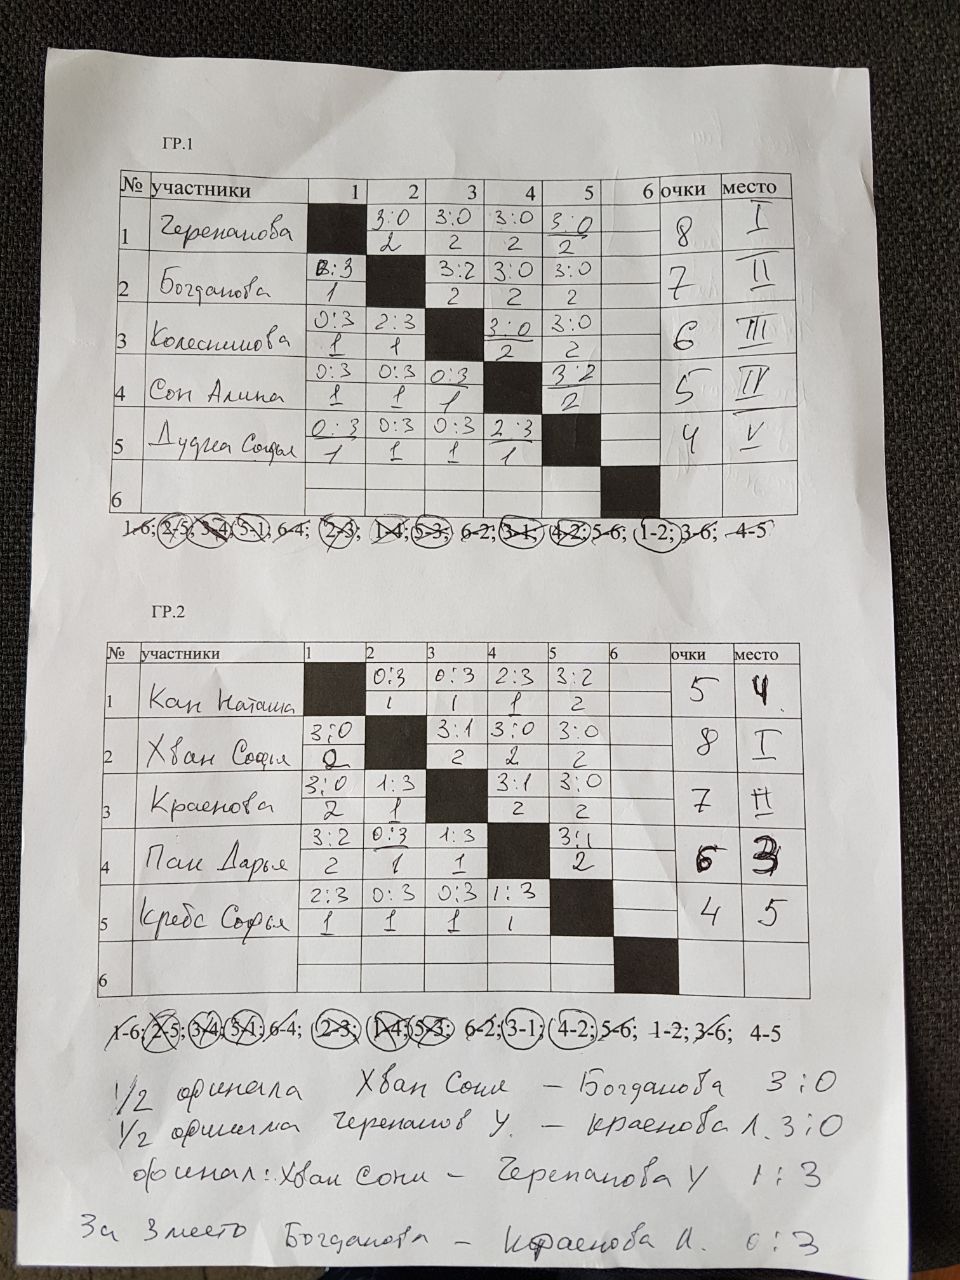 ГР.1
№ участники 1 2 3 4 5 6 очки место
1 Черепанова 3:0 3:0 3:0 3:0 8 I
2 2 2 2
2 Богданова 0:3 3:2 3:0 3:0 7 II
1 2 2 2
3 Колесникова 0:3 2:3 3:0 3:0 6 III
1 1 2 2
4 Сон Алина 0:3 0:3 0:3 3:2 5 IV
1 1 1 2
5 Дудка Софья 0:3 0:3 0:3 2:3 4 V
1 1 1 1
6
1-6; 2-5; 3-4; 5-1; 6-4; 2-3; 1-4; 5-3; 6-2; 3-1; 4-2; 5-6; 1-2; 3-6; 4-5
ГР.2
№ участники 1 2 3 4 5 6 очки место
1 Кан Наташа 0:3 0:3 2:3 3:2 5 4.
1 1 1 2
2 Хван Софья 3:0 3:1 3:0 3:0 8 I
2 2 2 2
3 Краенова 3:0 1:3 3:1 3:0 7 II
2 1 2 2
4 Пак Дарья 3:2 0:3 1:3 3:1 6 3
2 1 1 2
5 Кребс Софья 2:3 0:3 0:3 1:3 4 5
1 1 1 1
6
1-6; 2-5; 3-4; 5-1; 6-4; 2-3; 1-4; 5-3; 6-2; 3-1; 4-2; 5-6; 1-2; 3-6; 4-5
1/2 финала Хван Соня – Богданова 3:0
1/2 финала Черепанов У. – Краенова Л. 3:0
финал: Хван Сони – Черепанова У 1:3
За 3 место Богданова – Краенова Л. 0:3